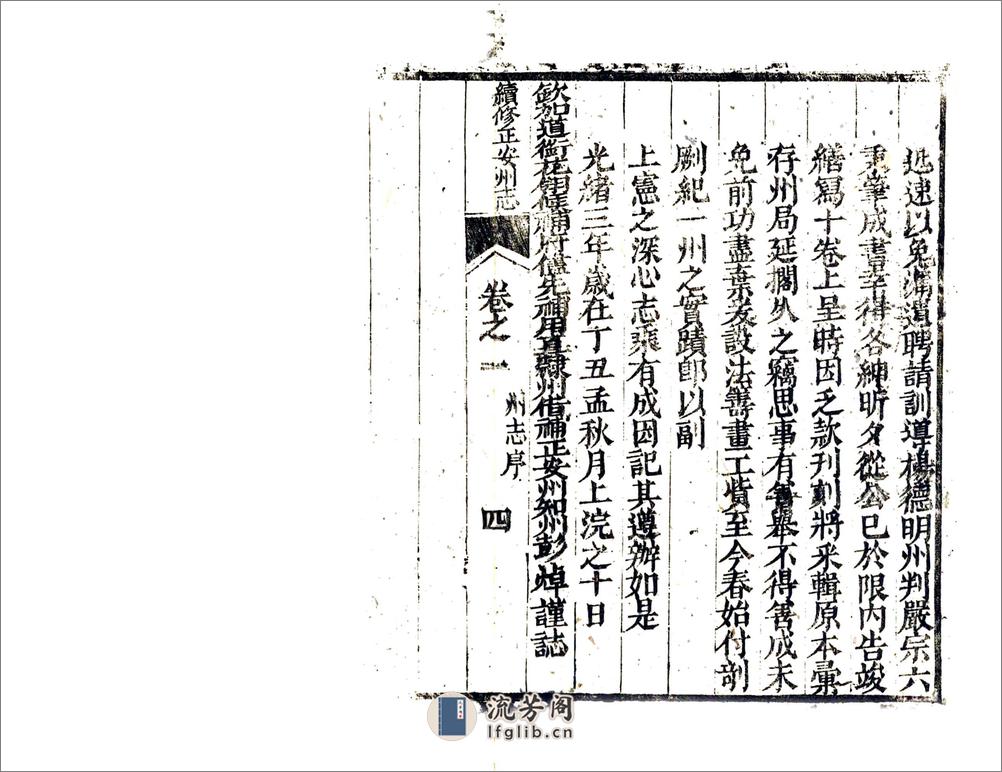 迅速以免漏遺聘請訓導楊德明州判嚴宗六
秉筆成書幸得各紳昕夕從公已於限內告竣
繕寫十卷上呈時因乏款刊刻將采輯原本彙
存州局延擱久之竊思事有善舉不得善成未
免前功盡棄爰設法籌畫工貲至今春始付剞
劂紀一州之實蹟即以副
上憲之深心志乘有成因記其遵辦如是
光緒三年歲在丁丑孟秋月上浣之十日
欽加道銜花翎候補府儘先補用直隸州借補正安州知州彭焯謹誌
續修正安州志
卷之一
州志序
四
流芳阁
lfglib.cn